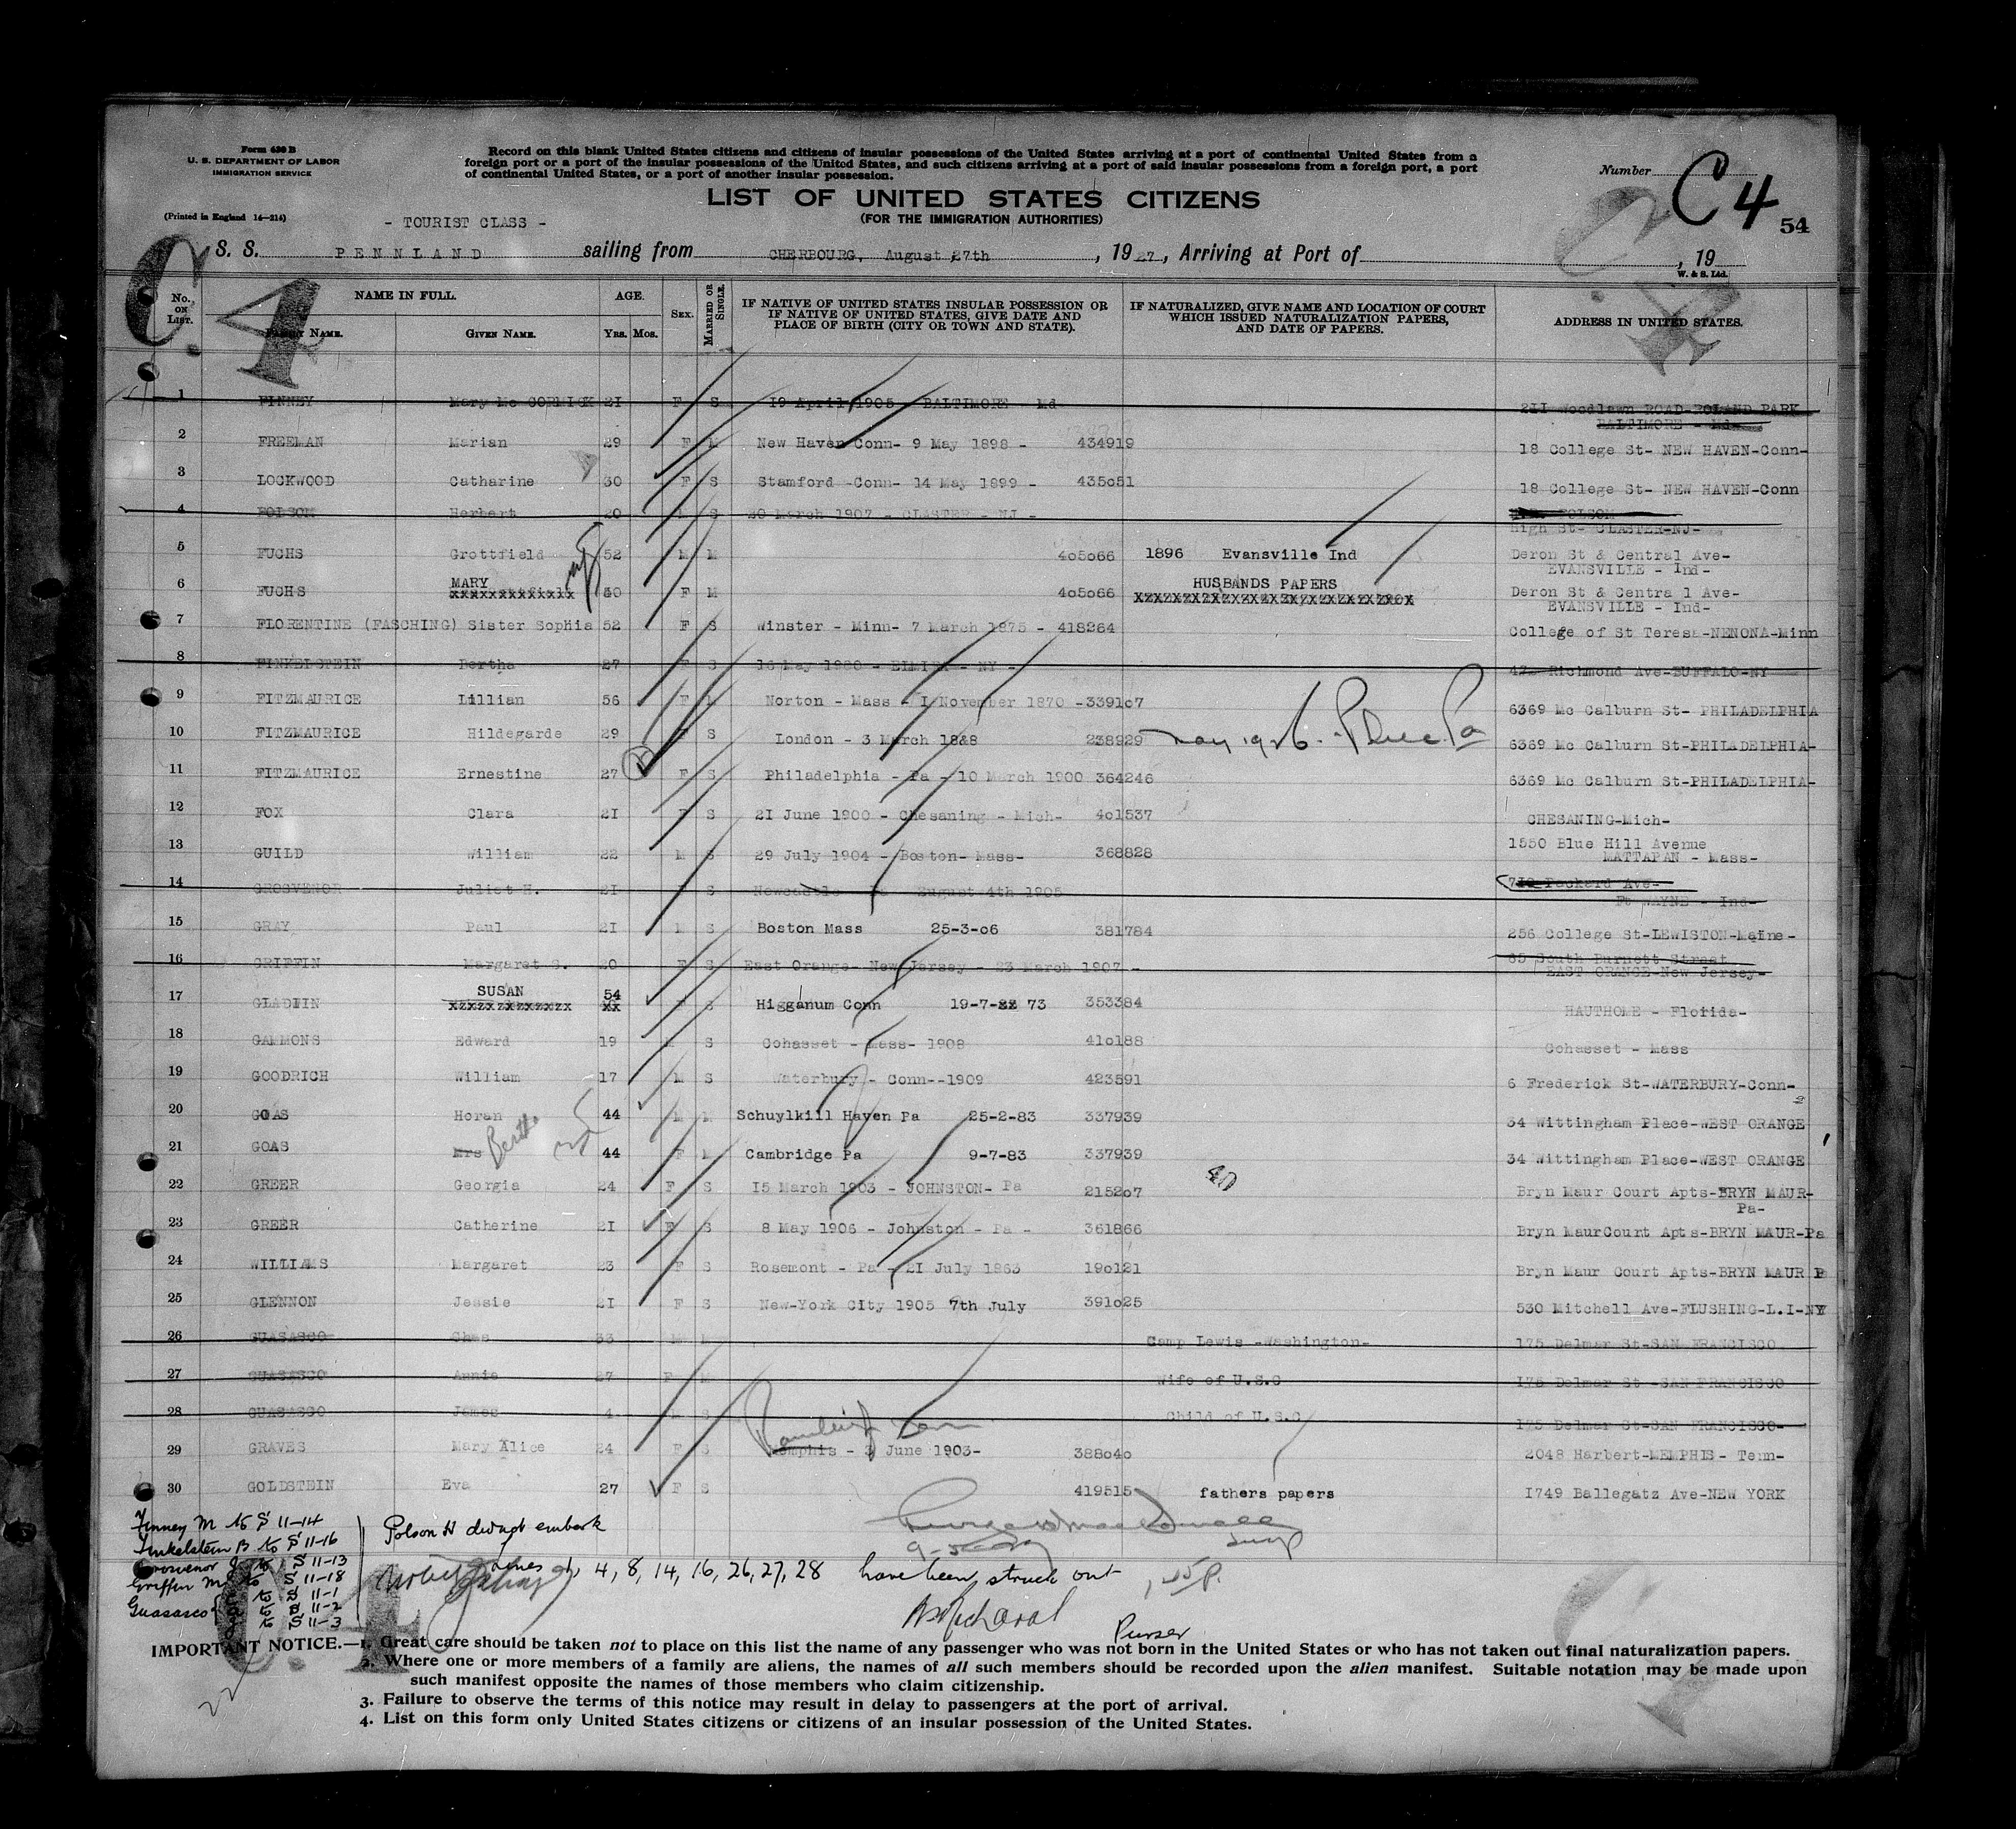 Form 630 B
U. S. DEPARTMENT OF LABOR
IMMIGRATION SERVICE
(Printed in England 14—214)
Record on this blank United States citizens and citizens of insular possessions of the United States arriving at a port of continental United States from a
foreign port or a port of the insular possessions of the United States, and such citizens arriving at a port of said insular possessions from a foreign port, a port
of continental United States, or a port of another insular possession.
LIST OF UNITED STATES CITIZENS
(FOR THE IMMIGRATION AUTHORITIES)
Number C 4
54
- TOURIST CLASS -
S. S. PENNLAND sailing from CHERBOURG, August 27th, 1927, Arriving at Port of , 19
W. & S. Ltd.
C. 4
C. 4
No. on List. NAME IN FULL. AGE. Sex. Married or Single. IF NATIVE OF UNITED STATES INSULAR POSSESSION OR IF NATIVE OF UNITED STATES, GIVE DATE AND PLACE OF BIRTH (CITY OR TOWN AND STATE). IF NATURALIZED, GIVE NAME AND LOCATION OF COURT WHICH ISSUED NATURALIZATION PAPERS, AND DATE OF PAPERS. ADDRESS IN UNITED STATES.
Family Name. Given Name. Yrs. Mos.
1 FINNEY Mary Mc CORMICK 21 F S 19 April 1905 - BALTIMORE - Md 211 Woodlawn ROAD-ROLAND PARK
BALTIMORE - Md-
2 FREEMAN Marian 29 F M New Haven Conn- 9 May 1898 - 434919 18 College St- NEW HAVEN-Conn-
3 LOCKWOOD Catharine 30 F S Stamford -Conn- 14 May 1899 - 435051 18 College St- NEW HAVEN-Conn
4 Herbert 20 S 20 March 1907 - CLASTER - NJ - FOLSOM
High St- CLASTER-NJ-
5 FUCHS Grottfield 52 M M 405066 1896 Evansville Ind Deron St & Central Ave-
EVANSVILLE - Ind-
6 FUCHS MARY F M 405066 HUSBANDS PAPERS Deron St & Centra l Ave-
EVANSVILLE - Ind-
7 FLORENTINE (FASCHING) Sister Sophia 52 F S Winster - Minn- 7 March 1875 - 418264 College of St Teresa-NENONA-Minn
8 FINKELSTEIN Bertha 27 F S 16 May - NY - Richmond Ave-BUFFALO-NY
9 FITZMAURICE Lillian 56 F M Norton - Mass - I November 1870 -339107 6369 Mc Calburn St- PHILADELPHIA
10 FITZMAURICE Hildegarde 29 F S London - 3 March 1888 238929 6369 Mc Calburn St-PHILADELPHIA-
11 FITZMAURICE Ernestine 27 F S Philadelphia - Pa - 10 March 1900 364246 6369 Mc Calburn St-PHILADELPHIA-
12 FOX Clara 21 F S 21 June 1900 - Chesaning - Mich- 401537 CHESANING-Mich-
13 GUILD William 22 M S 29 July 1904 - Boston- Mass- 368828 1550 Blue Hill Avenue
MATTAPAN - Mass-
14 GROSVENOR Juliet H. 21 F S Newcastle August 4th 1905 Packard Ave-
Ft WAYNE - Ind-
15 GRAY Paul 21 M S Boston Mass 25-3-06 381784 256 College St-LEWISTON-Maine-
16 GRIFFIN Margaret S. 20 F S East Orange- New Jersey - 23 March 1907 - 65 South Burnett Street
EAST ORANGE-New Jersey-
17 SUSAN 54 F S Higganum Conn 19-7- 73 353384 HAUTHOME - Florida-
18 GAMMONS Edward 19 S Cohasset - Mass- 1908 410188 Cohasset - Mass
19 GOODRICH William 17 M S Waterbury - Conn--1909 423591 6 Frederick St-WATERBURY-Conn-
20 GOAS Horan 44 M M Schuylkill Haven Pa 25-2-83 337939 34 Wittingham Place-WEST ORANGE
21 GOAS Mrs Bertha 44 F M Cambridge Pa 9-7-83 337939 34 Wittingham Place-WEST ORANGE
22 GREER Georgia 24 F S 15 March 1903 - JOHNSTON- Pa 215207 Bryn Maur Court Apts-BRYN MAUR-
Pa-
23 GREER Catherine 21 F S 8 May 1906 - Johnston - Pa - 361866 Bryn MaurCourt Apts-BRYN MAUR-Pa
24 WILLIAMS Margaret 23 F S Rosemont - Pa - 21 July 1863 190121 Bryn Maur Court Apts-BRYN MAUR P
25 GLENNON Jessie 21 F S New-York CIty 1905 7th July 391025 530 Mitchell Ave-FLUSHING-L.I-NY
26 GUASASCO Chas 33 M M Camp Lewis -Washington- 175 Delmar St-SAN FRANCISCO
27 GUASASCO Annie 27 F M Wife of U.S.C 175 Delmar St -SAN FRANCISCO
28 GUASASCO James 4 S Child of U.S.C 175 Delmar St-SAN FRANCISCO-
29 GRAVES Mary Alice 24 F S Memphis - 3 June 1903- 388040 2048 Harbert-MEMPHIS- Tenn-
30 GOLDSTEIN Eva 27 F S 419515 fathers papers 1749 Ballegatz Ave-NEW YORK
Finney M to S 11-14
Finkelstein B to S 11-16
Grosvenor J to S 11-13
Griffin M to S 11-18
Guasasco to S 11-1
to S 11-2
to S 11-3
Polson H did not embark
lines 1, 4, 8, 14, 16, 26, 27, 28 have been struck out
Purser
IMPORTANT NOTICE.—1. Great care should be taken not to place on this list the name of any passenger who was not born in the United States or who has not taken out final naturalization papers.
2. Where one or more members of a family are aliens, the names of all such members should be recorded upon the alien manifest. Suitable notation may be made upon
such manifest opposite the names of those members who claim citizenship.
3. Failure to observe the terms of this notice may result in delay to passengers at the port of arrival.
4. List on this form only United States citizens or citizens of an insular possession of the United States.